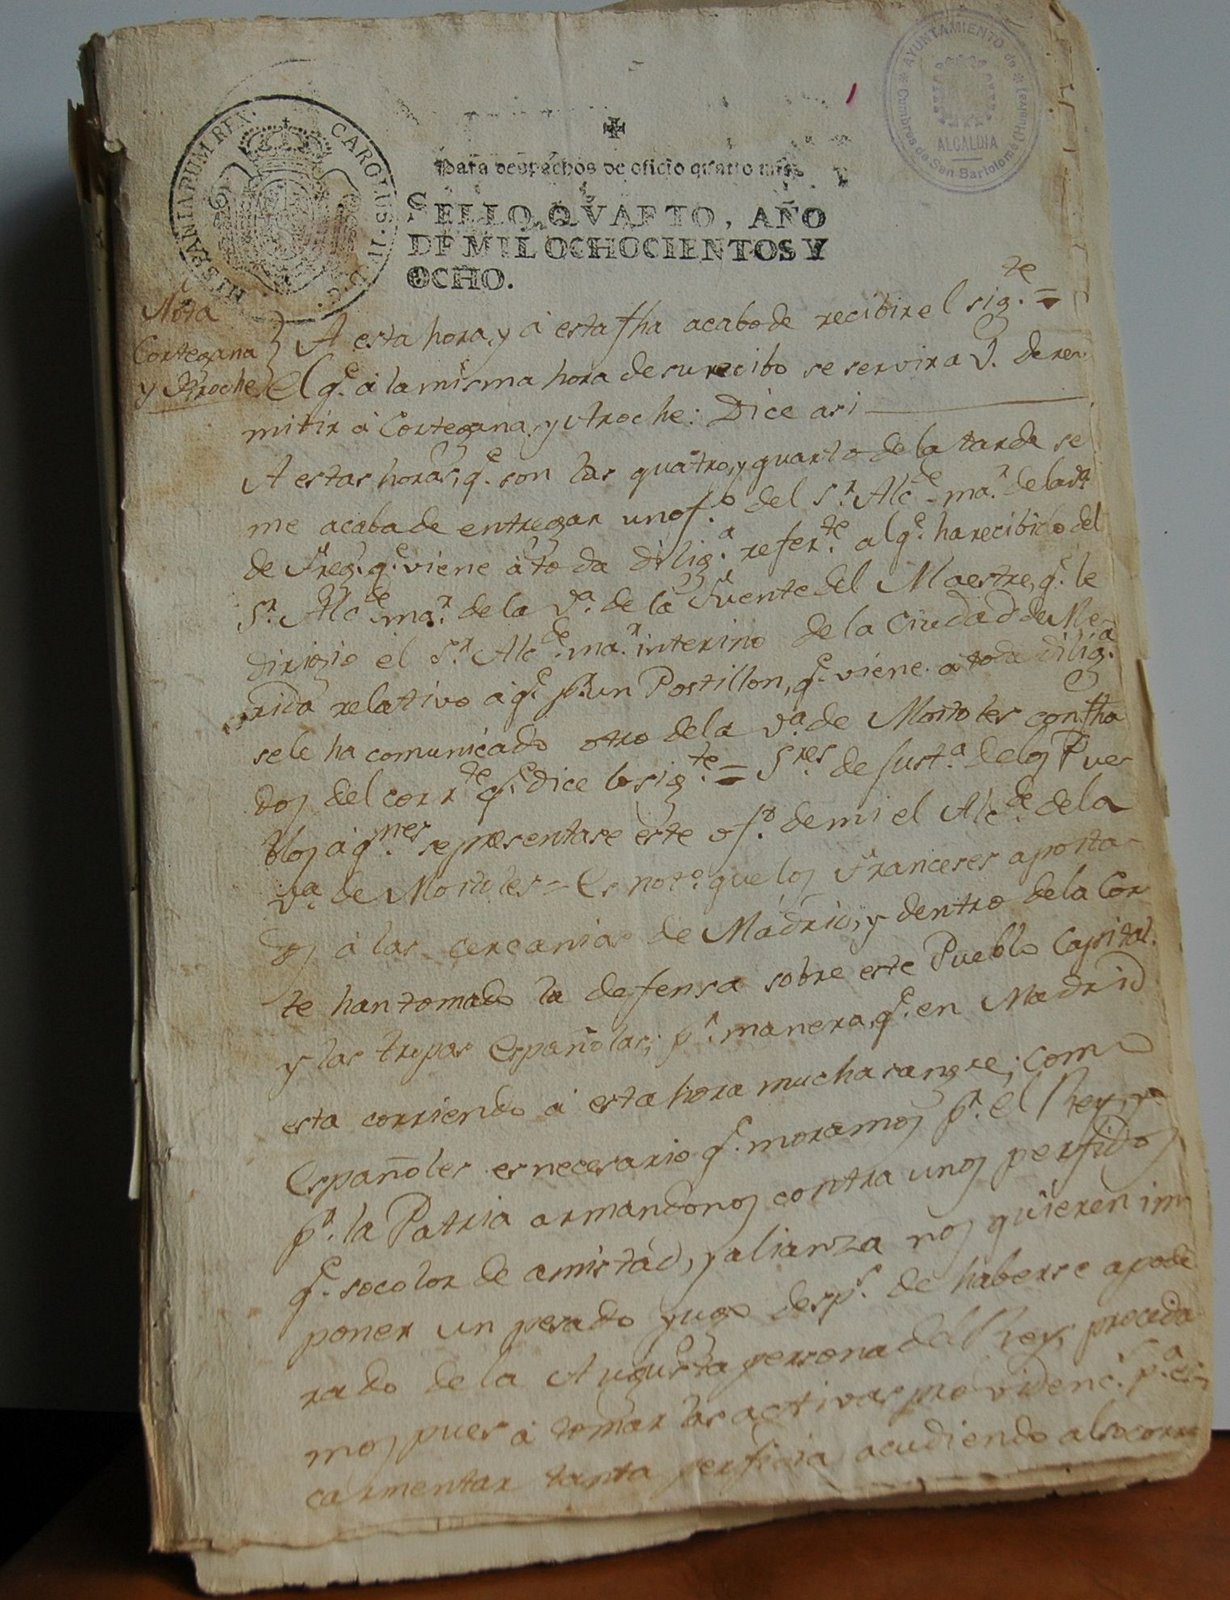 HISPANIARUM REX. CAROLUS. IV. D. G.
AYUNTAMIENTO de Cumbres de San Bartolomé (Huelva)
ALCALDIA
Para despachos de oficio quatro mrs.
SELLO QVARTO, AÑO
DE MIL OCHOCIENTOS Y
OCHO.
Nota
Cortegana
y Aroche
A esta hora, y á esta fha acabo de recibir el sig.te =
El q.e á la misma hora de su recibo se servira V. de re-
mitir á Cortegana, y Aroche: Dice asi
A estas horas, q.e son las quatro, y quarto de la tarde se
me acaba de entregar un of.o del S.r Alc.de ma.r de la v.a
de Freg.l q.e viene á toda dilig.a refer.te al q.e ha recibido del
S.r Alc.de ma.r de la V.a de la Fuente del Maestre, q.e le
dirigio el S.r Alc.de ma.r interino de la Ciudad de Me-
rida relativo á q.e p.r un Postillon, q.e viene a toda dilig.a
se le ha comunicado otro de la V.a de Mostoles con fha
dos del corr.te q.e dice lo sig.te = S.res de Just.a de los Pue-
blos á q.nes se presentase este of.o de mi el Alc.de de la
V.a de Mostoles = Es not.o que los Franceses aposta-
dos á las cercanias de Madrid, y dentro de la Cor-
te han tomado la defensa sobre este Pueblo Capital
y las tropas Españolas; p.r manera, q.e en Madrid
esta corriendo á esta hora mucha sangre; como
Españoles es necesario q.e moramos p.r el Rey, y
p.r la Patria armandonos contra unos perfidos
q.e so color de amistad, y alianza nos quieren im-
poner un pesado yugo desp.s de haberse apode-
rado de la Augusta persona del Rey; proceda-
mos pues á tomar las activas providenc.s p.a es-
carmentar tanta perfidia, acudiendo al socorro